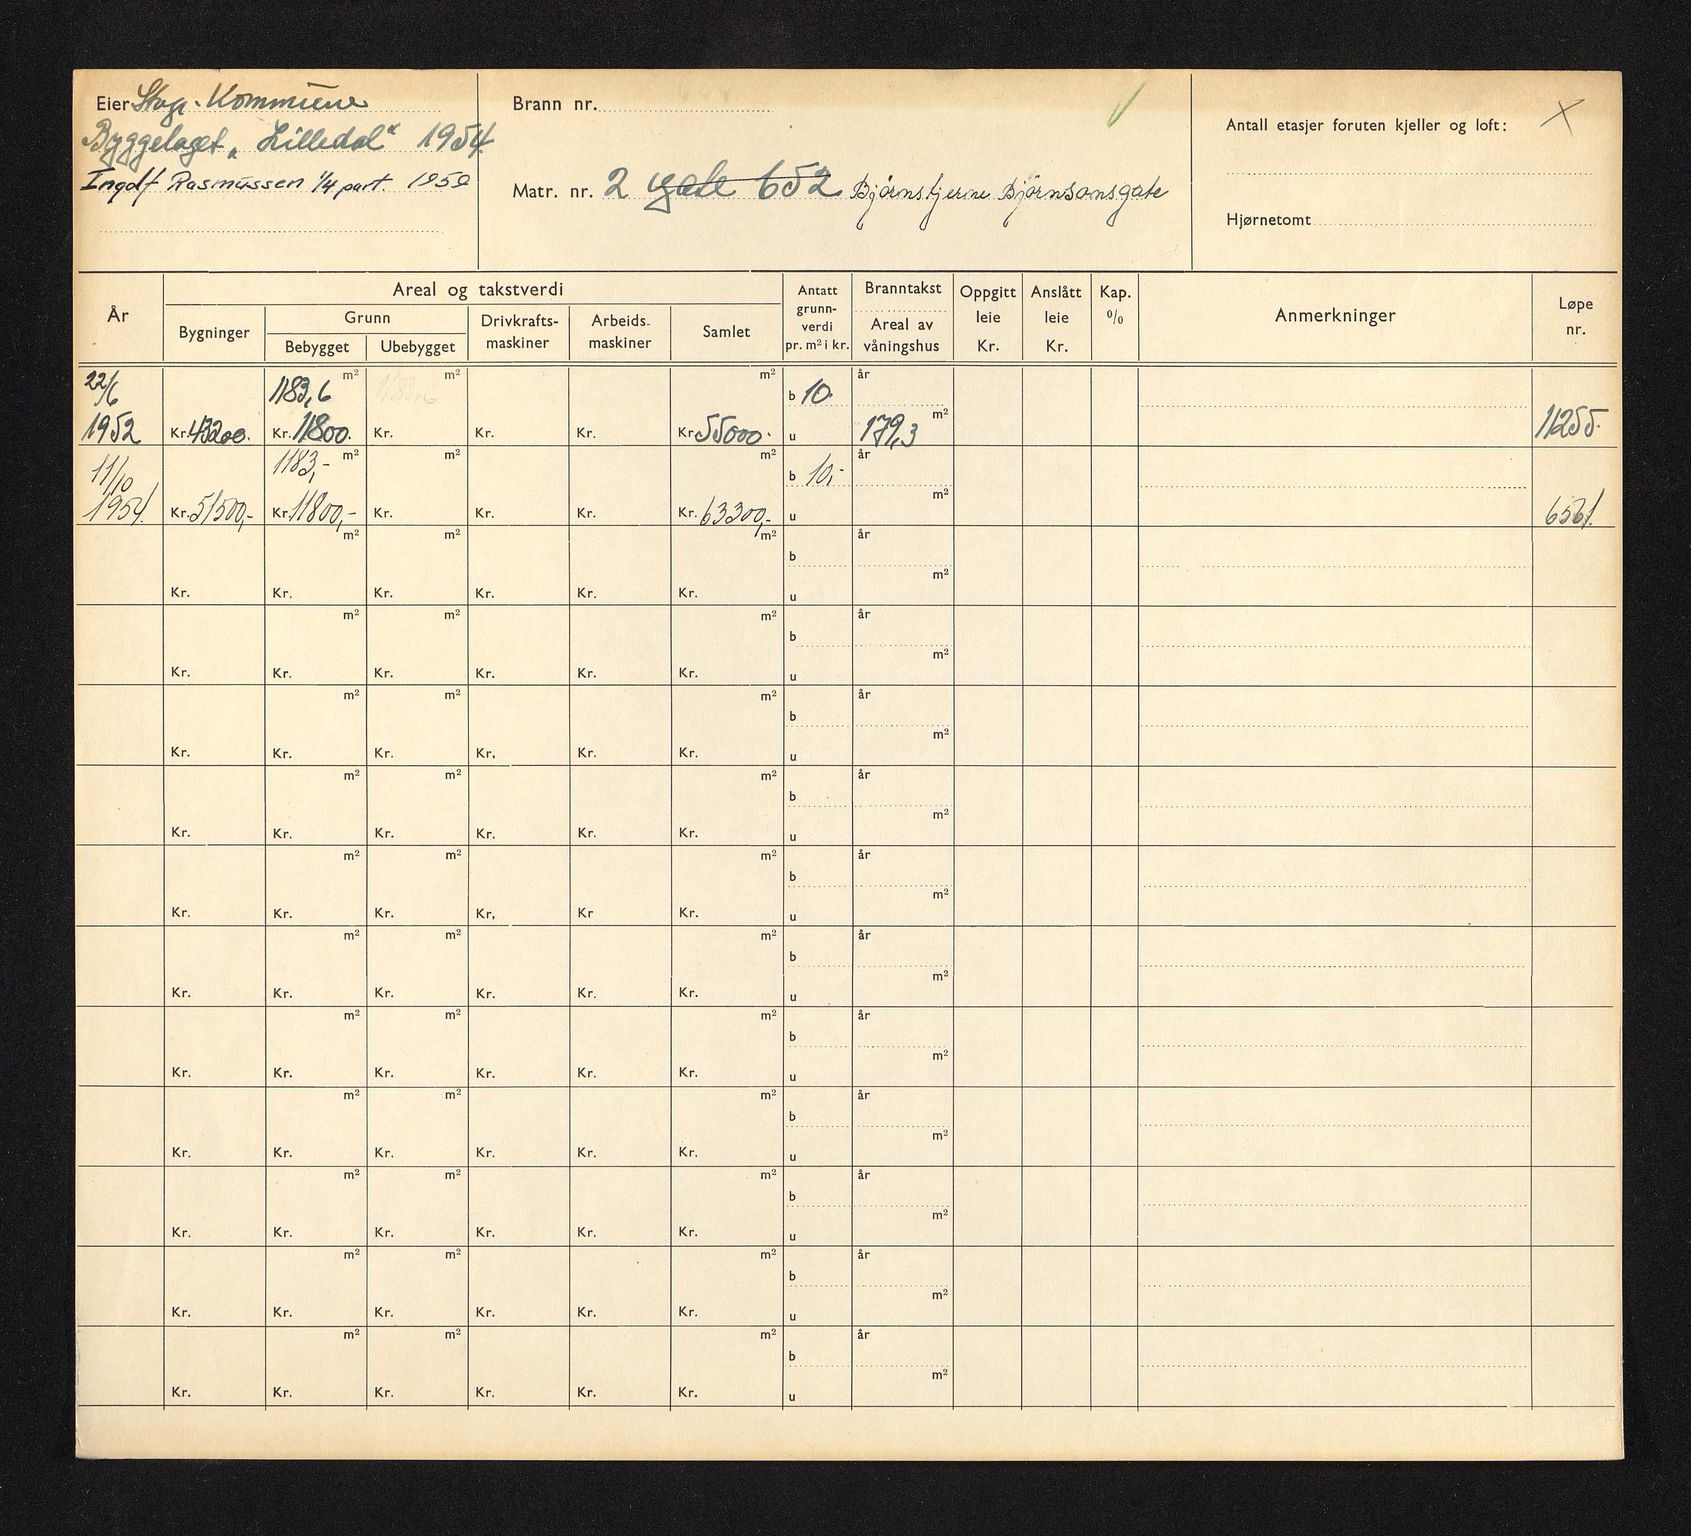 Eier Stvgr. Kommune
Byggelaget „Lilledal“ 1954
Ingolf Rasmussen 1/4 part. 1959
Brann nr.
Matr. nr. 2 gate 652 Bjørnstjerne Bjørnsonsgate
Antall etasjer foruten kjeller og loft: X
Hjørnetomt
År
Areal og takstverdi
Bygninger
Grunn
Bebygget Ubebygget
Drivkrafts-
maskiner
Arbeids-
maskiner
Samlet
Antatt
grunn-
verdi
pr. m² i kr.
Branntakst
Areal av
våningshus
Oppgitt
leie
Kr.
Anslått
leie
Kr.
Kap.
%
Anmerkninger
Løpe
nr.
22/6 1183,6 m² 1183,6 m² m² b 10. år
1952 Kr. 43200. Kr. 11800. Kr. Kr. Kr. Kr. 55000. u 179,3 m² 11255.
11/10 1183,- m² m² m² b 10,- år
1954. Kr. 51500,- Kr. 11800,- Kr. Kr. Kr. Kr. 63300,- u m² 6561.
m² m² m² b år
Kr. Kr. Kr. Kr. Kr. Kr. u m²
m² m² m² b år
Kr. Kr. Kr. Kr. Kr. Kr. u m²
m² m² m² b år
Kr. Kr. Kr. Kr, Kr. Kr. u m²
m² m² m² b år
Kr. Kr. Kr. Kr. Kr. Kr. u m²
m² m² m² b år
Kr. Kr. Kr. Kr, Kr Kr. u m²
m² m² m² b år
Kr. Kr. Kr. Kr. Kr. Kr. u m²
m² m² m² b år
Kr. Kr. Kr. Kr. Kr. Kr. u m²
m² m² m² b år
Kr. Kr. Kr. Kr. Kr. Kr. u m²
m² m² m² b år
Kr. Kr. Kr. Kr. Kr. Kr. u m²
m² m² m² b år
Kr. Kr. Kr. Kr. Kr. Kr. u m²
m² m² m² b år
Kr. Kr. Kr. Kr. Kr. Kr. u m²